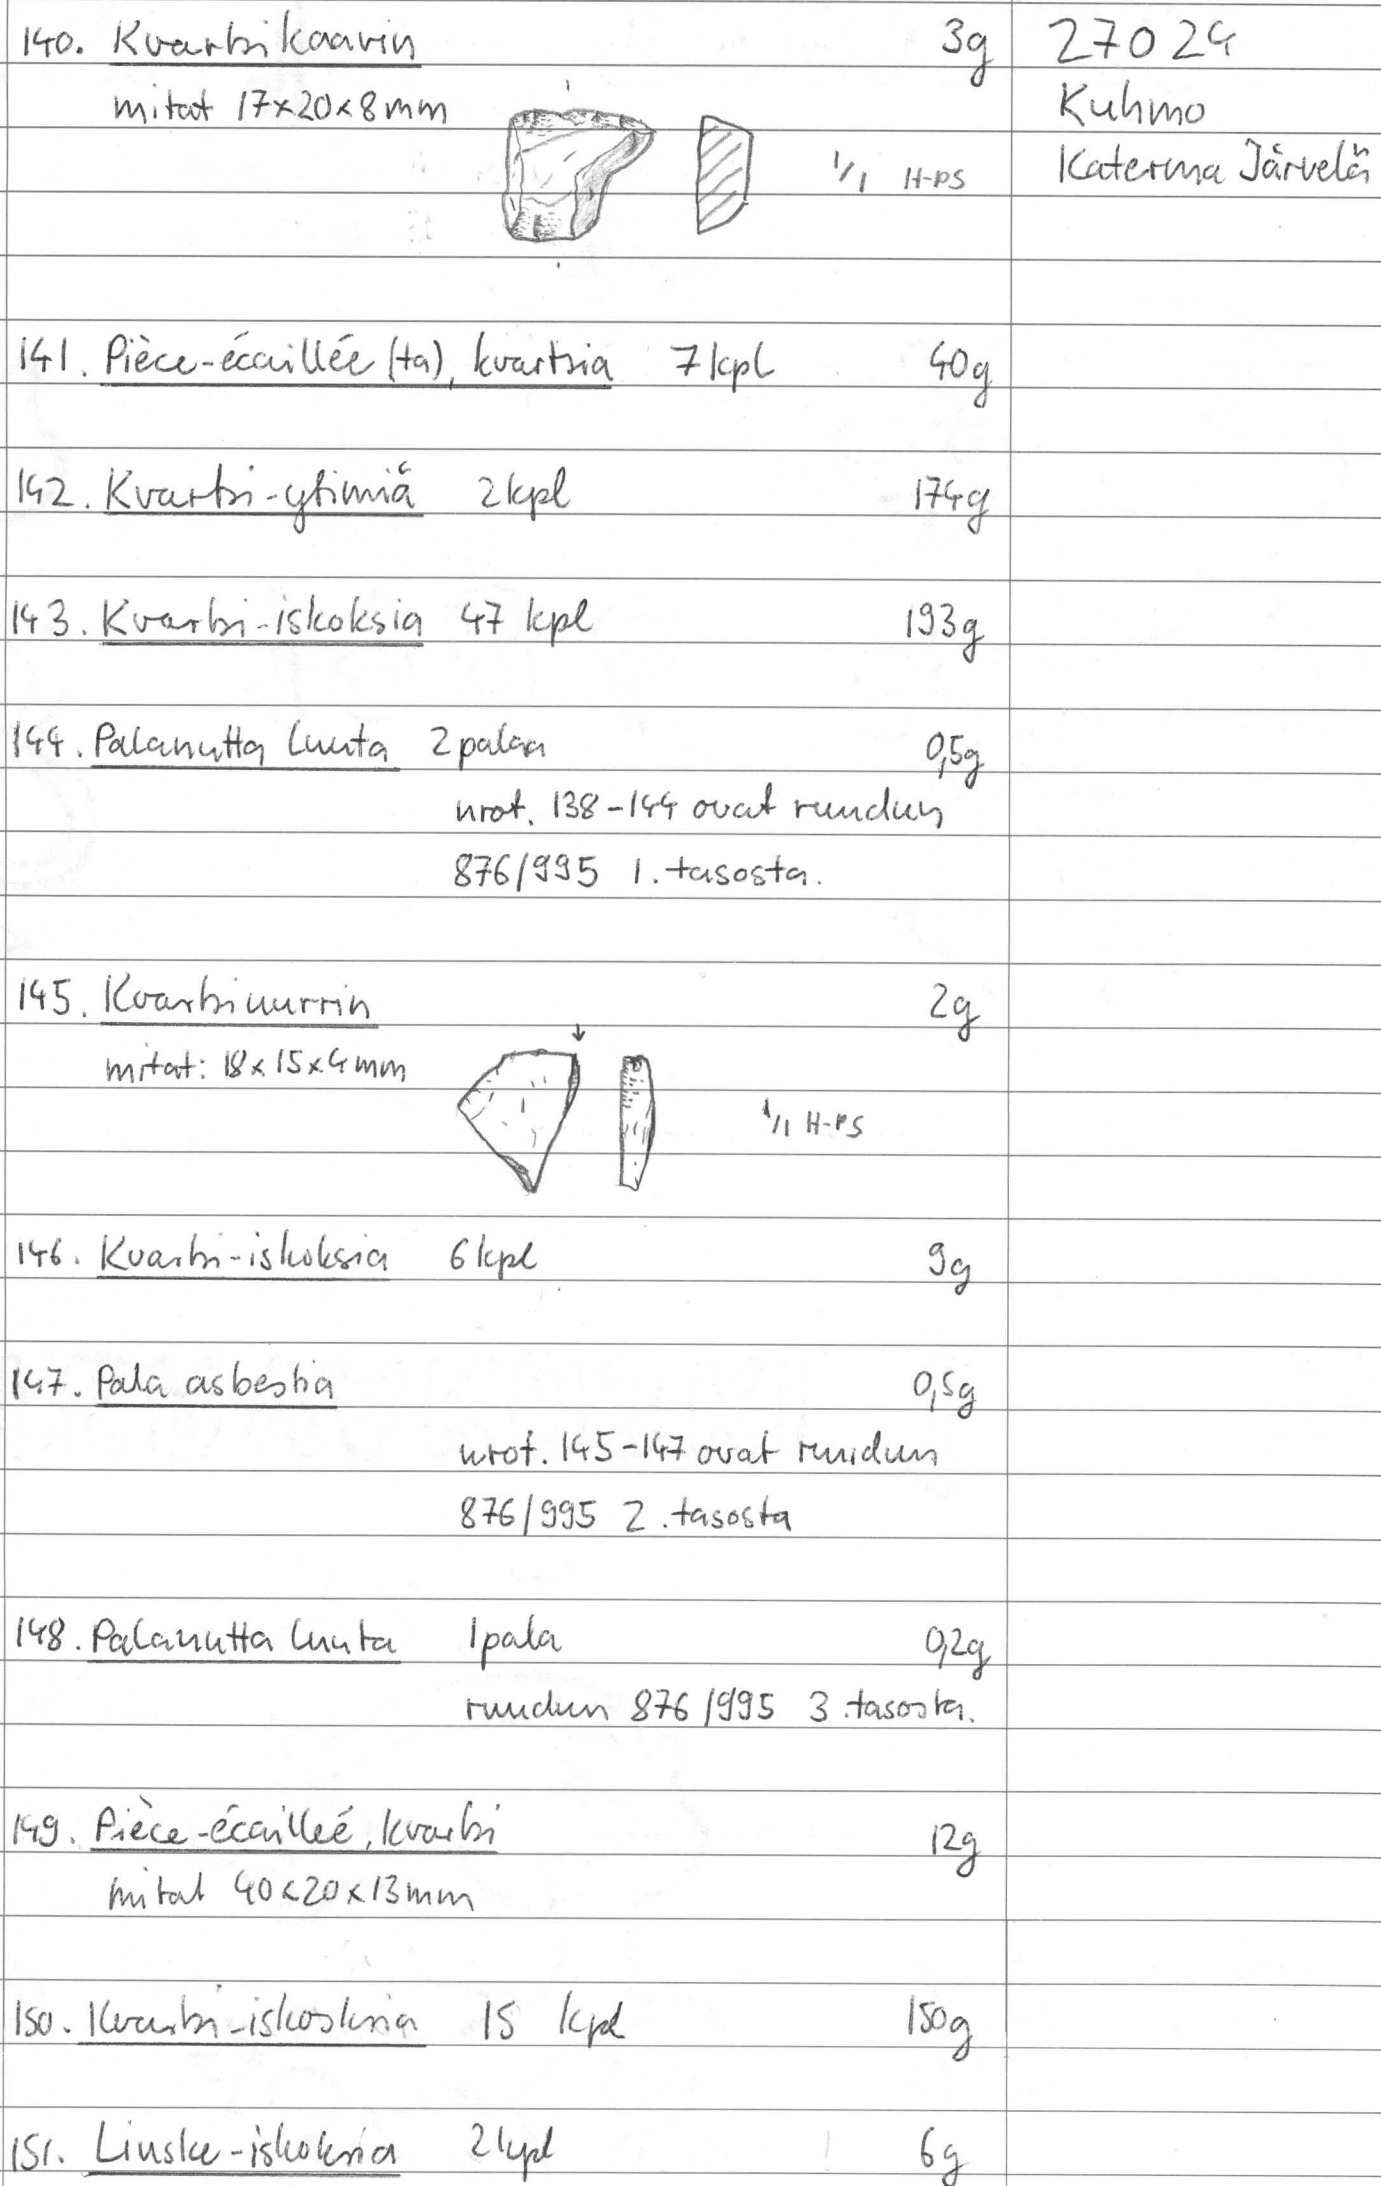 140. Kvartsikaavin 3g
mitat 17x20x8mm
1/1 H-PS
27024
Kuhmo
Katerma Järvelä
141. Pièce-écaillée (ta), kvartsia 7 kpl 40g
142. Kvartsi-ytimiä 2 kpl 174g
143. Kvartsi-iskoksia 47 kpl 193g
144. Palanutta luuta 2 palaa 0,5g
nrot. 138-144 ovat ruudun
876/995 1. tasosta.
145. Kvartsiuurrin 2g
mitat: 18x15x4mm
1/1 H-PS
146. Kvartsi-iskoksia 6 kpl 9g
147. Pala asbestia 0,5g
nrot. 145-147 ovat ruudun
876/995 2. tasosta
148. Palanutta luuta 1 pala 0,2g
ruudun 876/995 3. tasosta.
149. Pièce-écailleé, kvartsi 12g
mitat 40x20x13mm
150. Kvartsi-iskoksia 15 kpl 150g
151. Liuske-iskoksia 2 kpl 6g